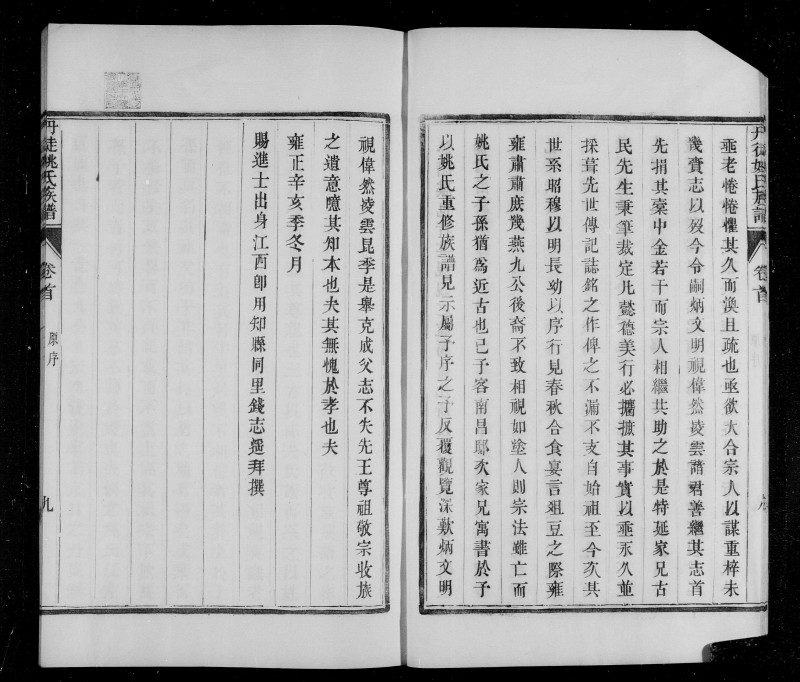 埀老惓惓懼其久而渙且疏也亟欲大合宗人以謀重梓未
幾賫志以歿今令嗣炳文明視偉然凌雲諸君善繼其志首
先捐其槖中金若干而宗人相繼共助之於是特延家兄古
民先生秉筆裁定凡懿德美行必攟摭其事實以埀永久並
採葺先世傳記誌銘之作俾之不漏不支自始祖至今亥其
世系昭穆以明長幼以序行見春秋合食宴言俎豆之際雍
雍肅肅庶幾燕九公後裔不致相視如塗人則宗法雖亡而
姚氏之子孫猶爲近古也已予客南昌邸次家兄寓書於予
以姚氏重修族譜見示屬予序之予反覆觀覽深歎炳文明
丹徒姚氏族譜
卷首
視偉然凌雲昆季是舉克成父志不失先王尊祖敬宗收族
之遺意噫其知本也夫其無愧於孝也夫
雍正辛亥季冬月
賜進士出身江西卽用知縣同里錢志遥拜撰
丹徒姚氏族譜
卷首
原序
九